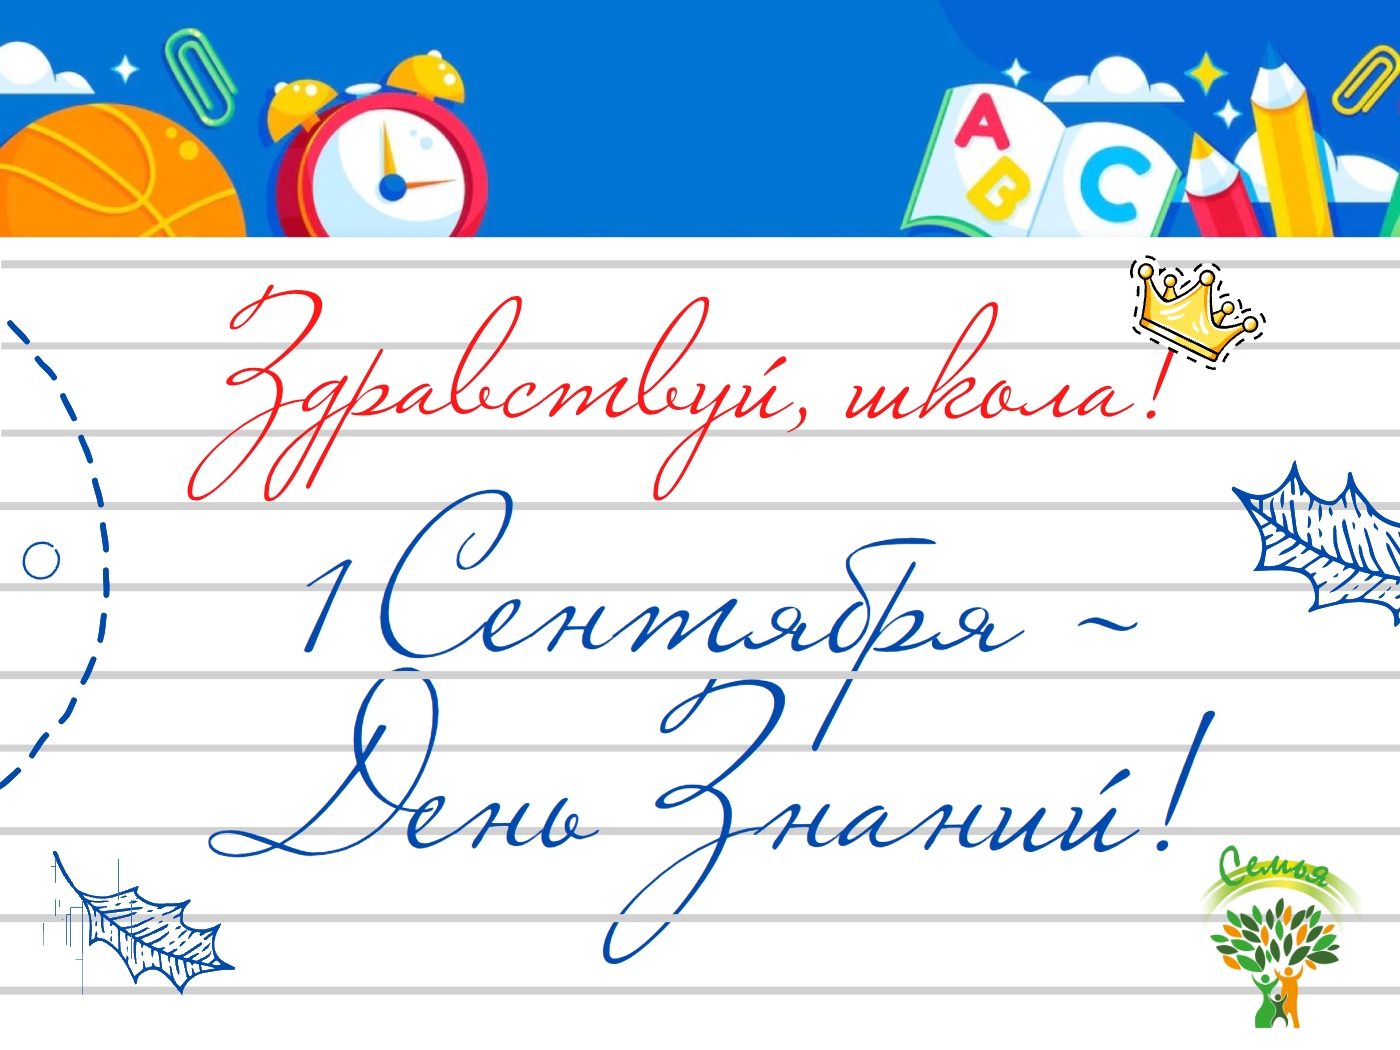 A
B
C
Здравствуй, школа!
1 Сентября ~
День Знаний!
Семья